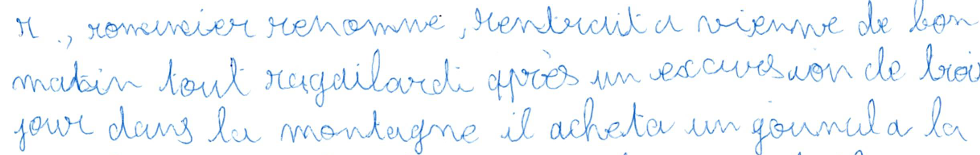 R., romancier renommé, rentrait a vienne de bon
matin tout ragaillardi après un excursion de troi
jour dans la montagne il acheta un journal a la